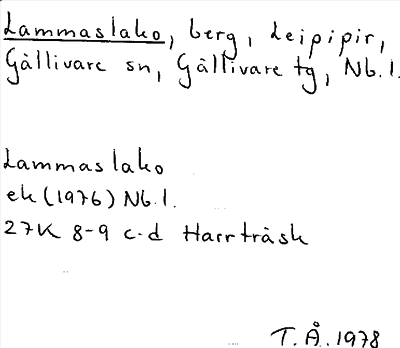 Lammaslako, berg, Leipipir,
Gällivare sn, Gällivare tg, Nb.l.
Lammaslako
ek (1976) Nb.l.
27K 8-9 c-d Harrträsk
T.Å. 1978